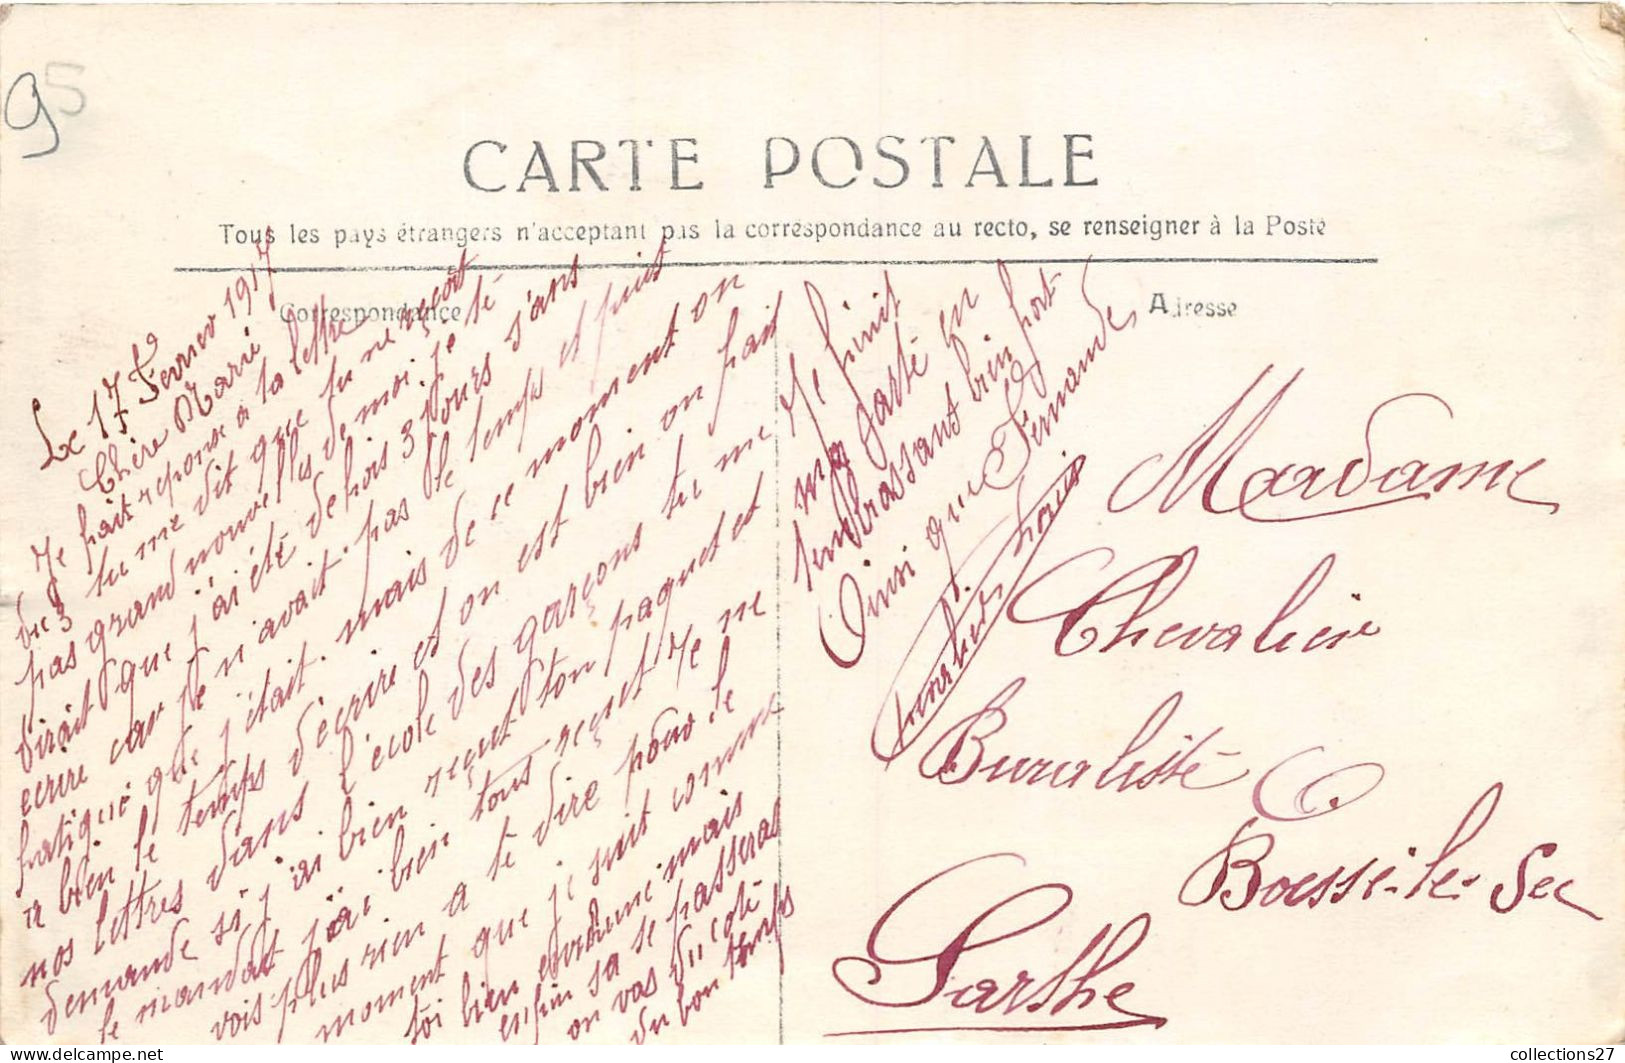 95
CARTE POSTALE
Tous les pays étrangers n'acceptant pas la correspondance au recto, se renseigner à la Poste
Correspondance
Adresse
Le 17 Fevrier 1917
Chère Marie
Je fait reponse a ta lettre
du 3 tu me dit que tu ne reçoit
pas grand nouvelles de moi. je te
dirait que j'ai été depuis 3 jours s'ans
ecrire car je n'avait pas le temps et puis
fatigué que j'était. mais de ce moment on
a bien le temps d'écrire et on est bien on fait
nos lettres dans l'école des garçons tu me
demande si j'ai bien reçut ton paquet et
le mandat j'ai bien tous reçut Je ne
vois plus rien a te dire pour le
moment que je suit comme
toi bien enrhumé mais
enfin sa se passeras
on vas du coté
du bon temps
Je finit
ma carte en
t'embrassant bien fort
Ainsi que Fernande
Louis
Madame
Chevalier
Buraliste
Boessé-le-Sec
Sarthe
collections27